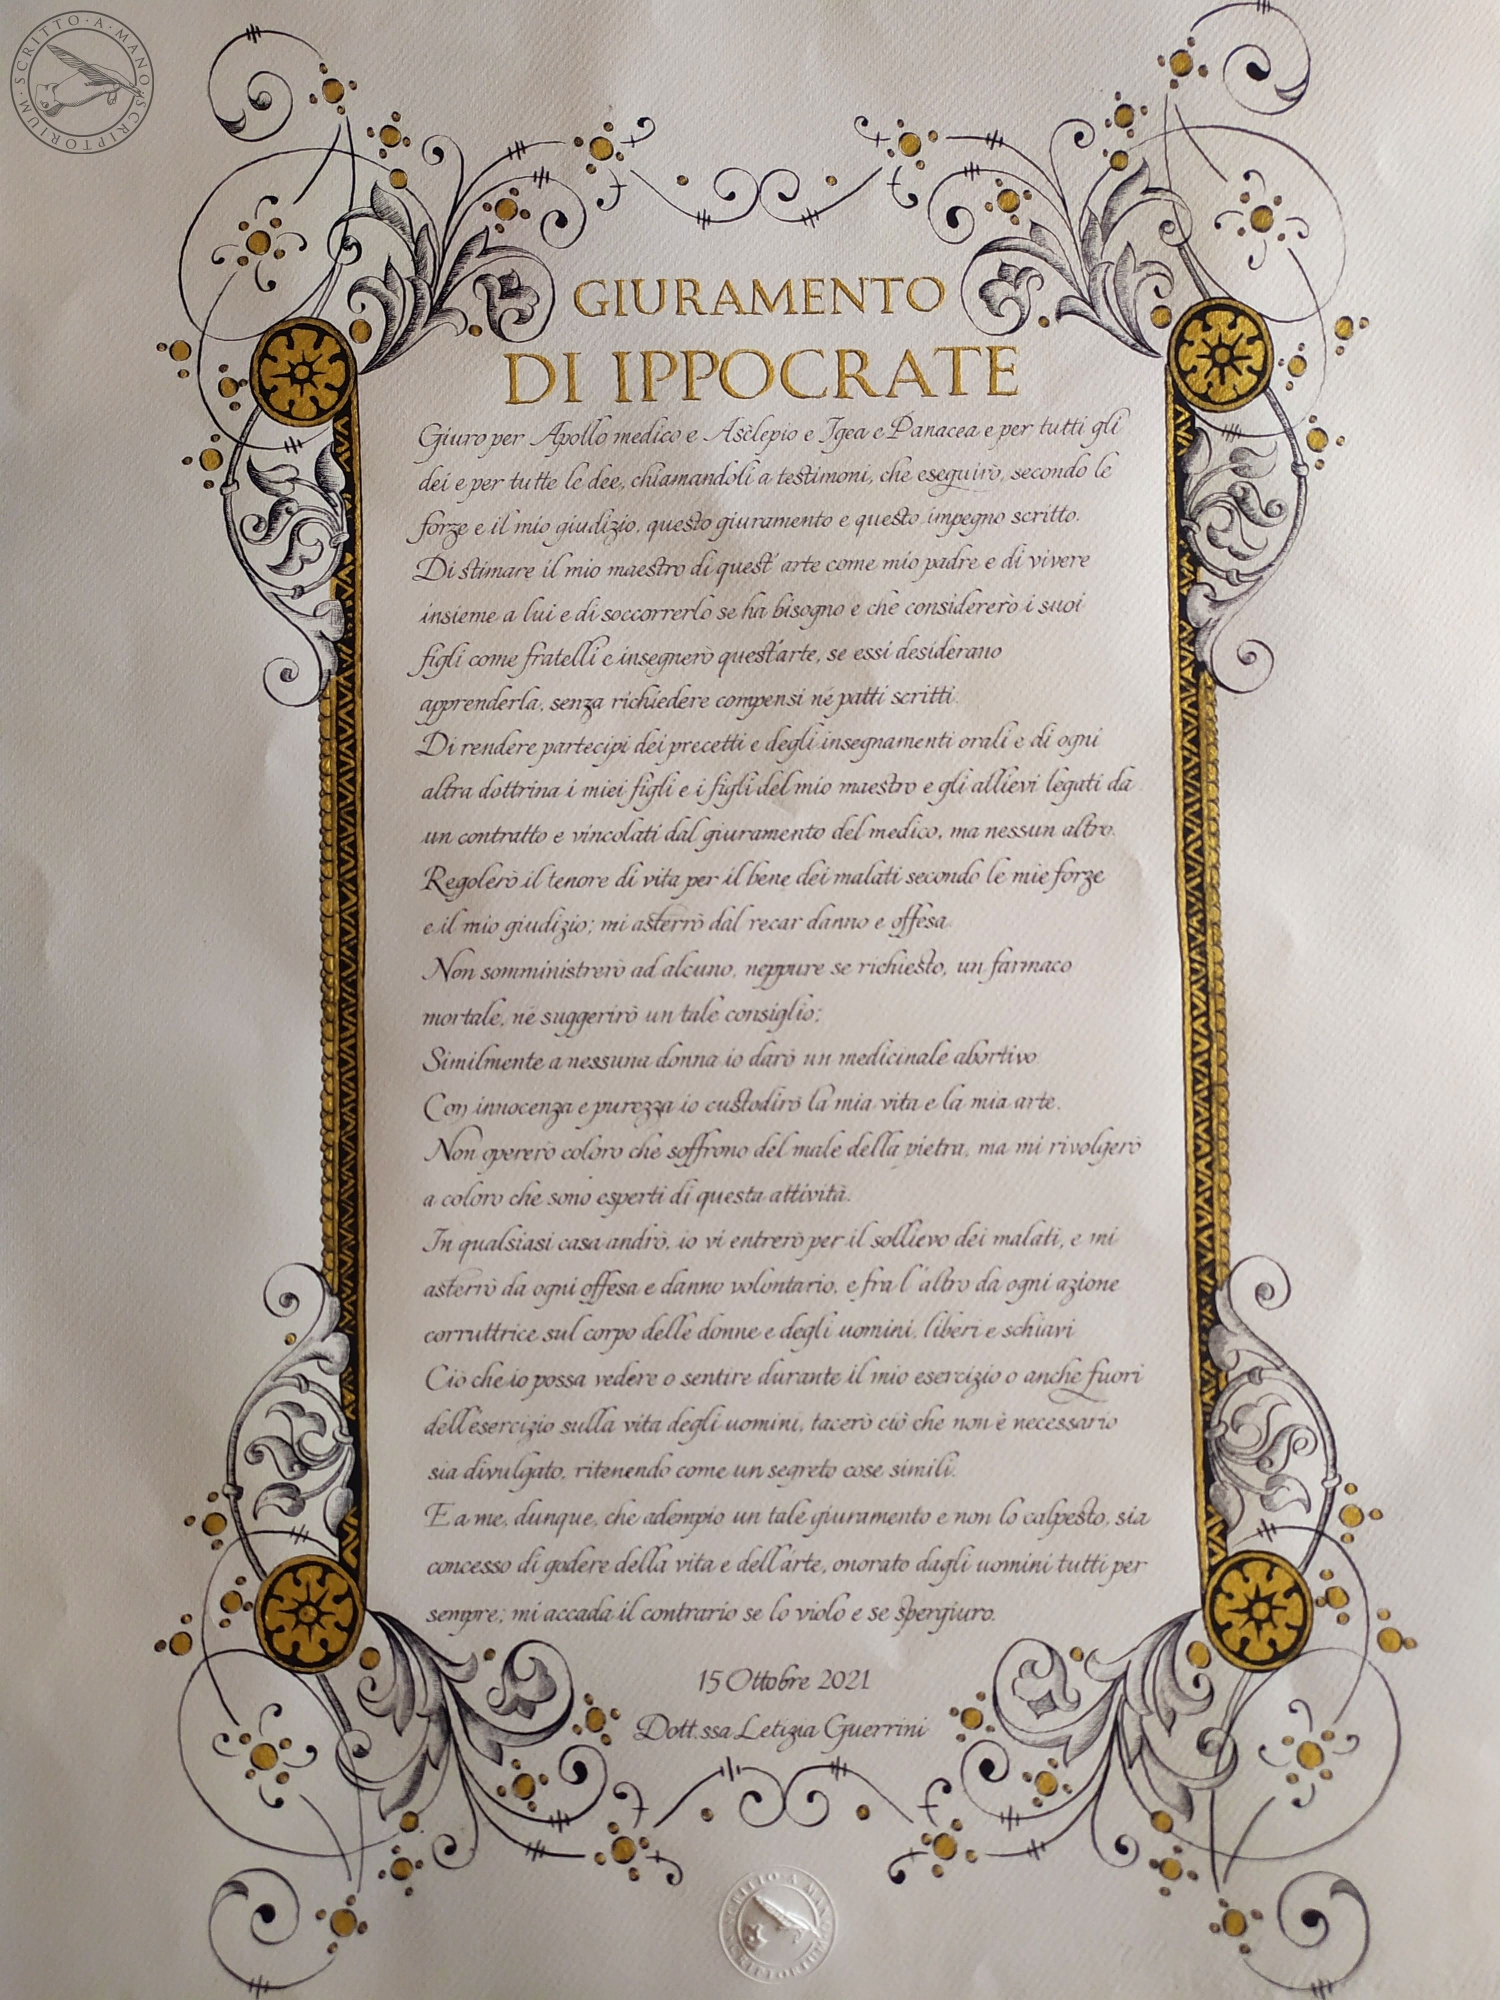 SCRITTO · A · MANO
SCRIPTORIUM · M ·
GIURAMENTO
DI IPPOCRATE
Giuro per Apollo medico e Asclepio e Igea e Panacea e per tutti gli
dei e per tutte le dee, chiamandoli a testimoni, che eseguirò, secondo le
forze e il mio giudizio, questo giuramento e questo impegno scritto.
Di stimare il mio maestro di quest' arte come mio padre e di vivere
insieme a lui e di soccorrerlo se ha bisogno e che considererò i suoi
figli come fratelli e insegnerò quest'arte, se essi desiderano
apprenderla, senza richiedere compensi né patti scritti.
Di rendere partecipi dei precetti e degli insegnamenti orali e di ogni
altra dottrina i miei figli e i figli del mio maestro e gli allievi legati da
un contratto e vincolati dal giuramento del medico, ma nessun altro.
Regolerò il tenore di vita per il bene dei malati secondo le mie forze
e il mio giudizio; mi asterrò dal recar danno e offesa.
Non somministrerò ad alcuno, neppure se richiesto, un farmaco
mortale, né suggerirò un tale consiglio;
Similmente a nessuna donna io darò un medicinale abortivo
Con innocenza e purezza io custodirò la mia vita e la mia arte.
Non opererò coloro che soffrono del male della pietra, ma mi rivolgerò
a coloro che sono esperti di questa attività.
In qualsiasi casa andrò, io vi entrerò per il sollievo dei malati, e mi
asterrò da ogni offesa e danno volontario, e fra l'altro da ogni azione
corruttrice sul corpo delle donne e degli uomini, liberi e schiavi
Ciò che io possa vedere o sentire durante il mio esercizio o anche fuori
dell'esercizio sulla vita degli uomini, tacerò ciò che non è necessario
sia divulgato, ritenendo come un segreto cose simili.
E a me, dunque, che adempio un tale giuramento e non lo calpesto, sia
concesso di godere della vita e dell'arte, onorato dagli uomini tutti per
sempre; mi accada il contrario se lo violo e se spergiuro.
15 Ottobre 2021
Dott.ssa Letizia Guerrini